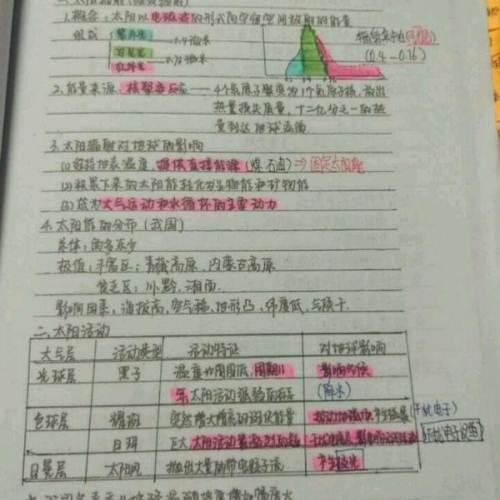 1.概念：太阳以电磁波的形式向宇宙空间放射的能量
组成
紫外光
可见光
红外光
0.4微米
0.76微米
(0.4-0.76)
2.能量来源：核聚变反应——4个氢原子聚变为1个氦原子核，放出
热量损失质量，
量到达地球表面
3.太阳辐射对地球的影响
(1)维持地表温度，提供直接能源(煤 石油)
(2)积累下来的太阳能转化为生物能和矿物能
(3)成为大气运动和水循环的主要动力
4.太阳能的分布（我国）
总体：西多东少
极值：丰富区：青藏高原、内蒙古高原
贫乏区：川黔、湘南
影响因素：海拔高，空气稀，地形凸，纬度低，
二、太阳活动
大气层 活动类型 活动特征 对地球影响
光球层 黑子 温度比周围低，周期11 影响气候
年 太阳活动强弱标志 (降水)
色球层 耀斑 突然增大增亮的斑块能量 (干扰电子)
日珥 巨大 太阳活动最激烈的 干扰
日冕层 太阳风 抛出大量的带电粒子流 产生极光